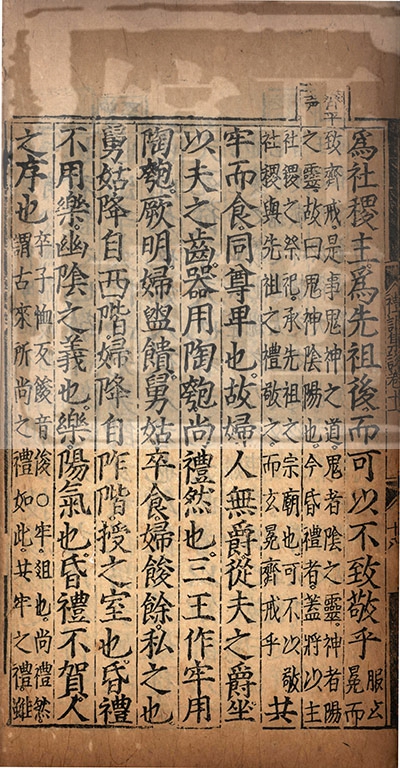 爲社稷主爲先祖後而可以不致敬乎服玄
冕而
致齊戒是事鬼神之道鬼者陰之靈神者陽
之靈故曰鬼神陰陽也今昏禮者蓋將以主
社稷之祭祀承先祖之宗廟也可不以敬
社稷與先祖之禮敬之而玄冕齊戒乎共
牢而食同尊卑也故婦人無爵從夫之爵坐
以夫之齒器用陶匏尚禮然也三王作牢用
陶匏厥明婦盥饋舅姑卒食婦餕餘私之也
舅姑降自西階婦降自阼階授之室也昏禮
不用樂幽陰之義也樂陽氣也昏禮不賀人
之序也卒子恤反餕音俊○牢俎也尚禮然
謂古來所尚之禮如此共牢之禮雖